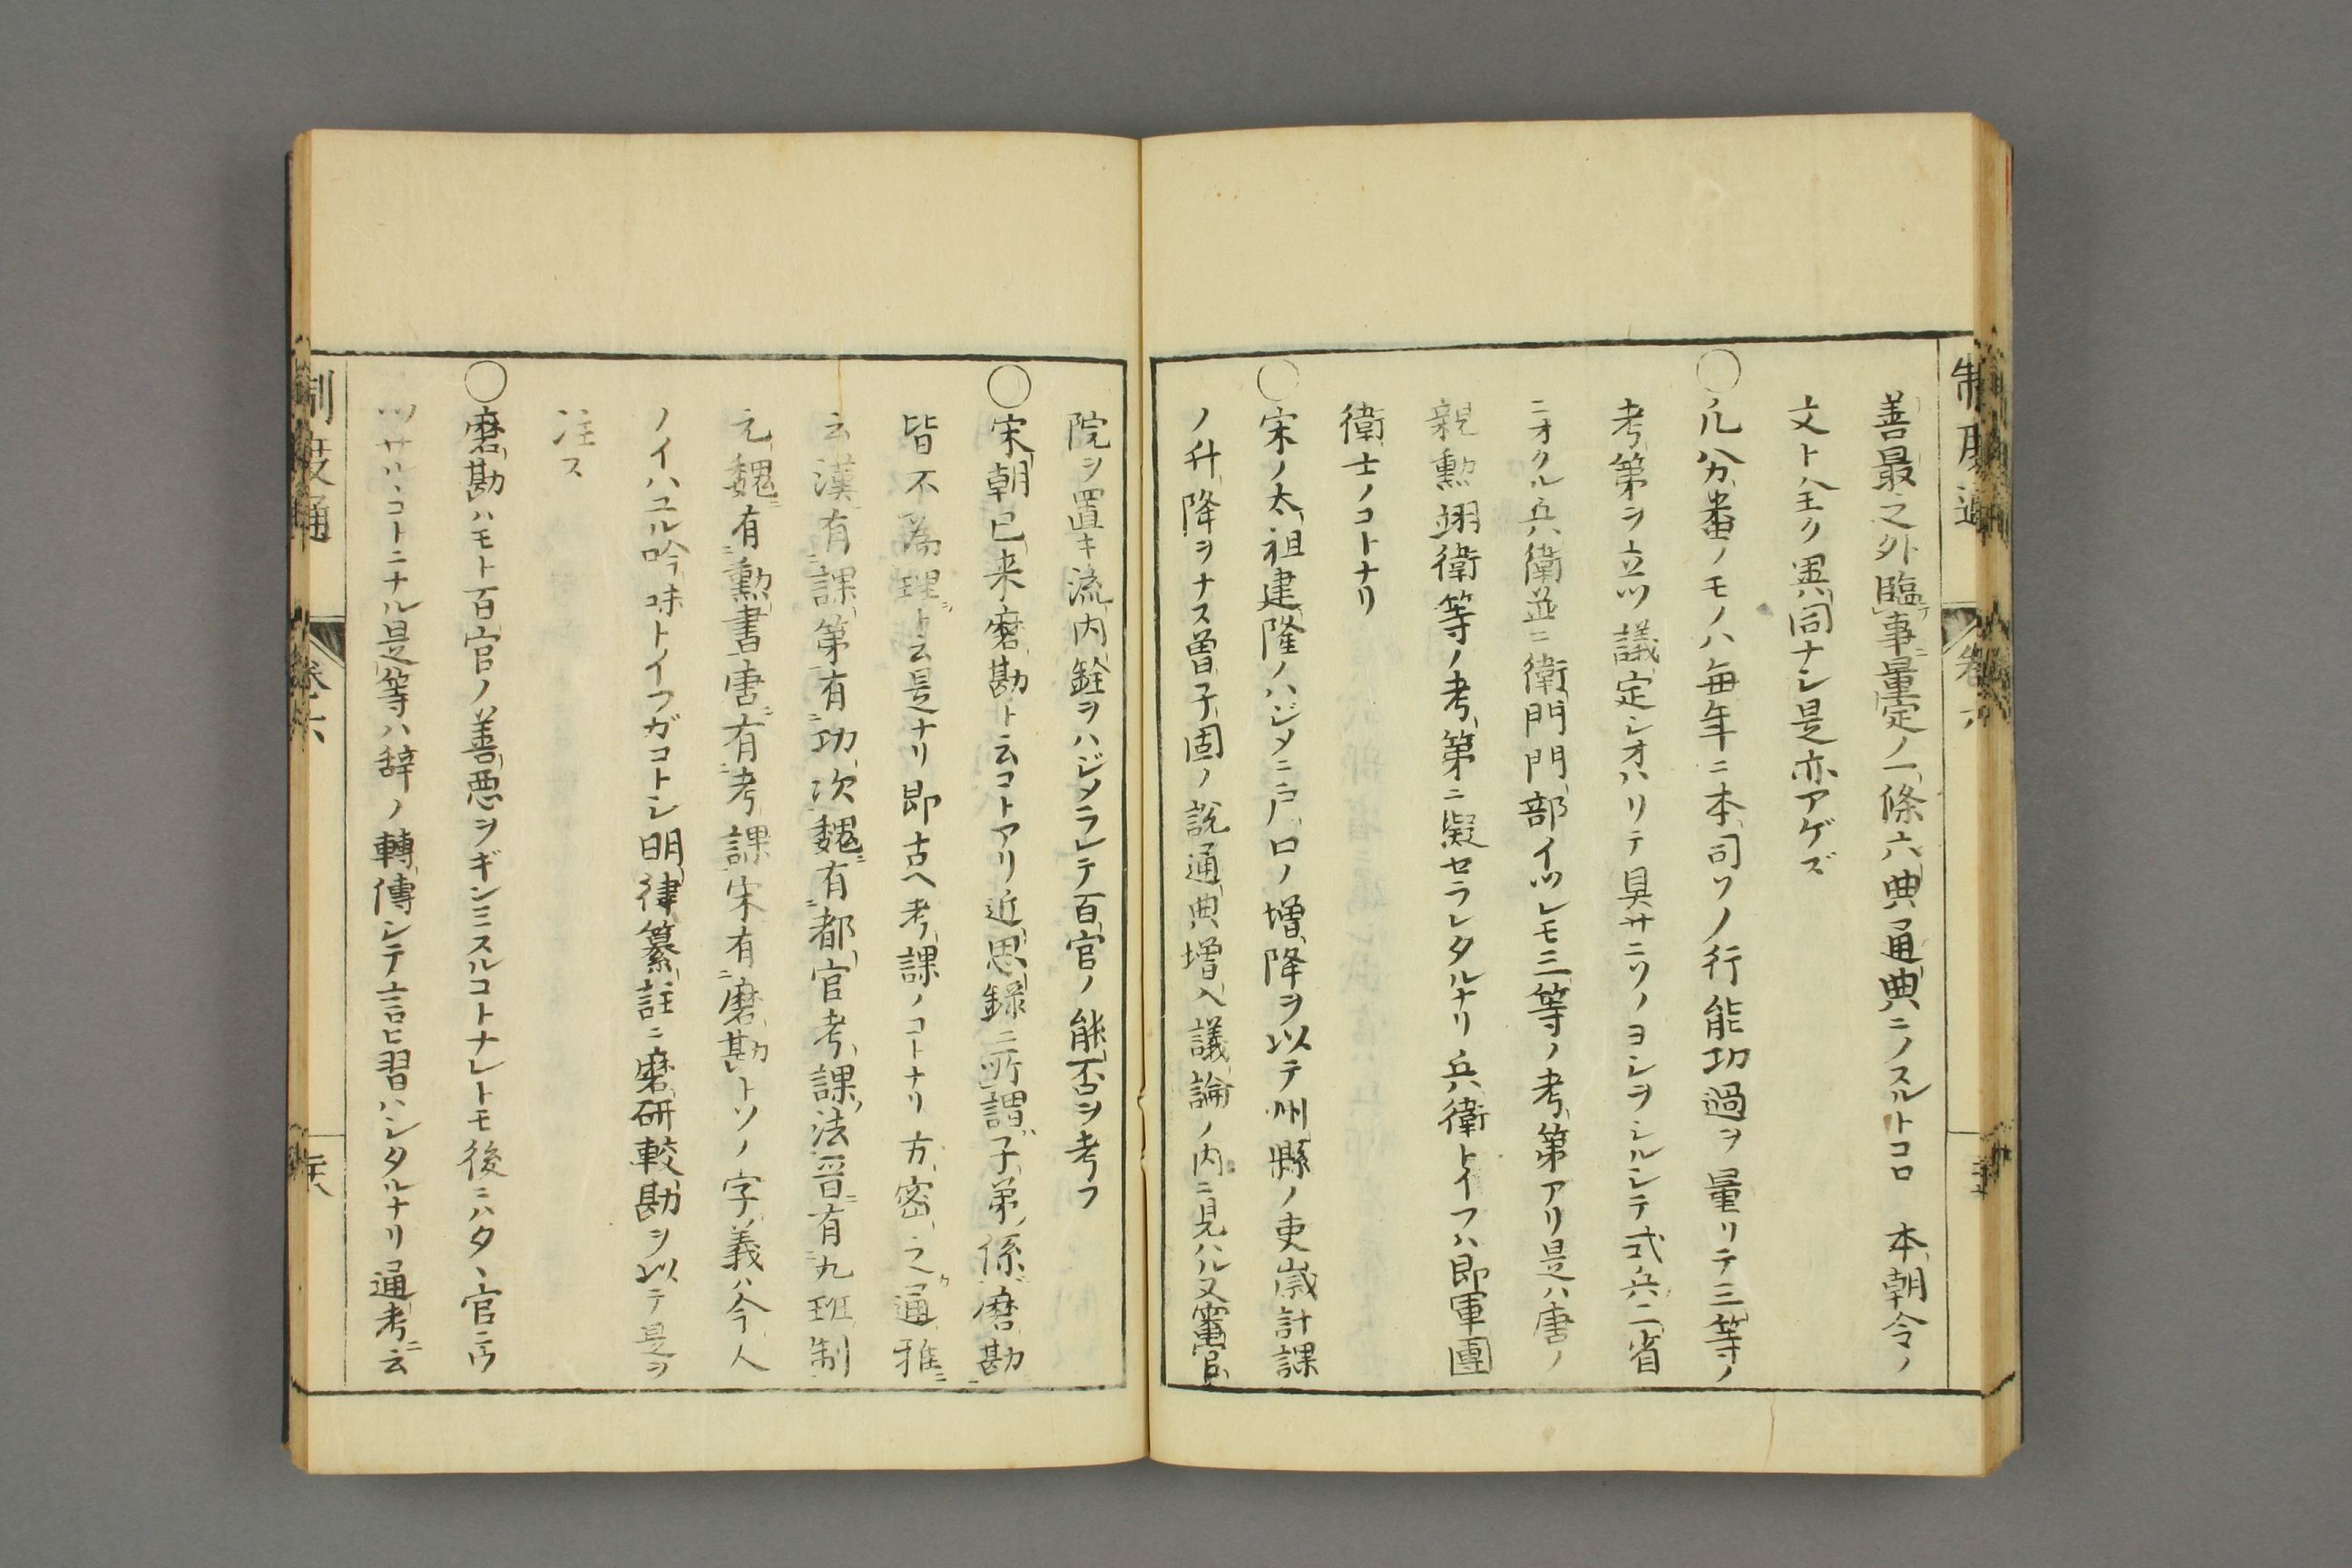 善最之外臨事量定ノ一條六典通典ニノスルトコロ　本朝令ノ
文トハ全ク異ハ同ナシ是亦アゲズ
○凡八分番ノモノハ毎年ニ本司ソノ行能功過ヲ量リテ三等ノ
考第ヲ立ツ議定シオハリテ具サニソノヨシヲシルシテ式兵二省
ニオクル兵衛並ニ衛門門部イツレモ三等ノ考第アリ是ハ唐ノ
親勲翊衛等ノ考第ニ擬セラレタルナリ兵衛トイフハ即軍團
衛士ノコトナリ
○宋ノ太祖建隆ノハジメニ戸口ノ増降ヲ以テ州縣ノ吏歳計課
ノ升降ヲナス曽子固ノ説通典増入議論ノ内ニ見ハル又審官
院ヲ置キ流内銓ヲハジメラレテ百官ノ能否ヲ考フ
○宋朝已来磨勘ト云コトアリ近思録ニ所謂子弟係磨勘
皆不為理ト云是ナリ即古ヘ考課ノコトナリ方密之通雅
云漢有課第有功次魏有都官考課法晋有九班制
元魏有勲書唐有考課宋有磨勘トソノ字義ハ今人
ノイハユル吟味トイフガコトシ明律纂註ニ磨研較勘ヲ以テ是ヲ
注ス
○磨勘ハモト百官ノ善悪ヲギンミスルコトナレトモ後ニハタヽ官ニウ
ツサルヽコトニナル是等ハ辞ノ轉傳シテ言ヒ習ハシタルナリ通考ニ云
制度通
巻六